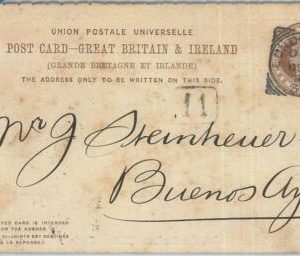 UNION POSTALE UNIVERSELLE
POST CARD—GREAT BRITAIN & IRELAND
(GRANDE BRETAGNE ET IRLANDE)
THE ADDRESS ONLY TO BE WRITTEN ON THIS SIDE.
11
Mr J Steinheuer
Buenos Ay
XED CARD IS INTENDED
FOR THE ANSWER.
CI-JOINTE EST DESTINÉE
À LA RÉPONSE.